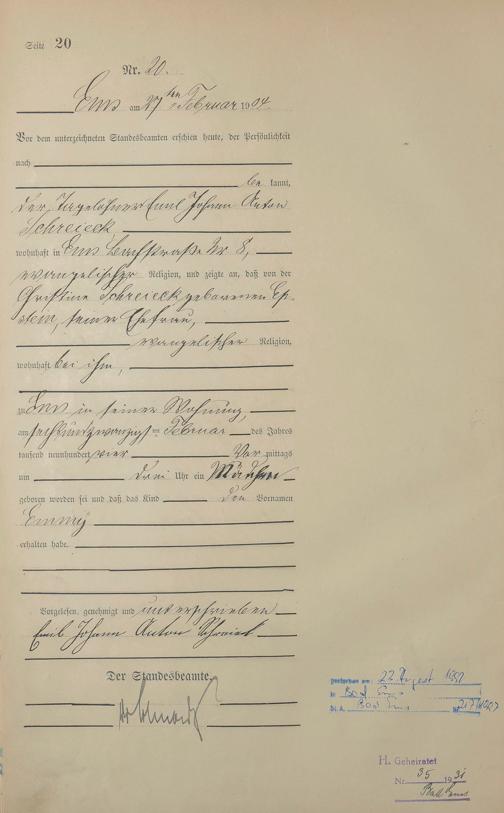 Seite 20
Nr. 20.
Ems am 27ten Februar 1904
Vor dem unterzeichneten Standesbeamten erschien heute, der Persönlichkeit
nach
be kannt,
der Tagelöhner Emil Johann Anton
Schreieck
wohnhaft in Ems Bachstraße Nr 8,
evangelischer Religion, und zeigte an, daß von der
Christine Schreieck geborenen Ep-
stein, seiner Ehefrau,
evangelischer Religion,
wohnhaft bei ihm,
zu Ems in seiner Wohnung,
am sechsundzwanzigsten Februar des Jahres
tausend neunhundert vier Vor mittags
um drei Uhr ein Mädchen
geboren worden sei und daß das Kind den Vornamen
Emmy
erhalten habe.
Vorgelesen, genehmigt und unterschrieben
Emil Johann Anton Schreieck
Der Standesbeamte.
gestorben am: 22. August
in Bad Ems
St. A. Bad Ems Nr.
H. Geheiratet
Nr. 35 1931
Bad Ems